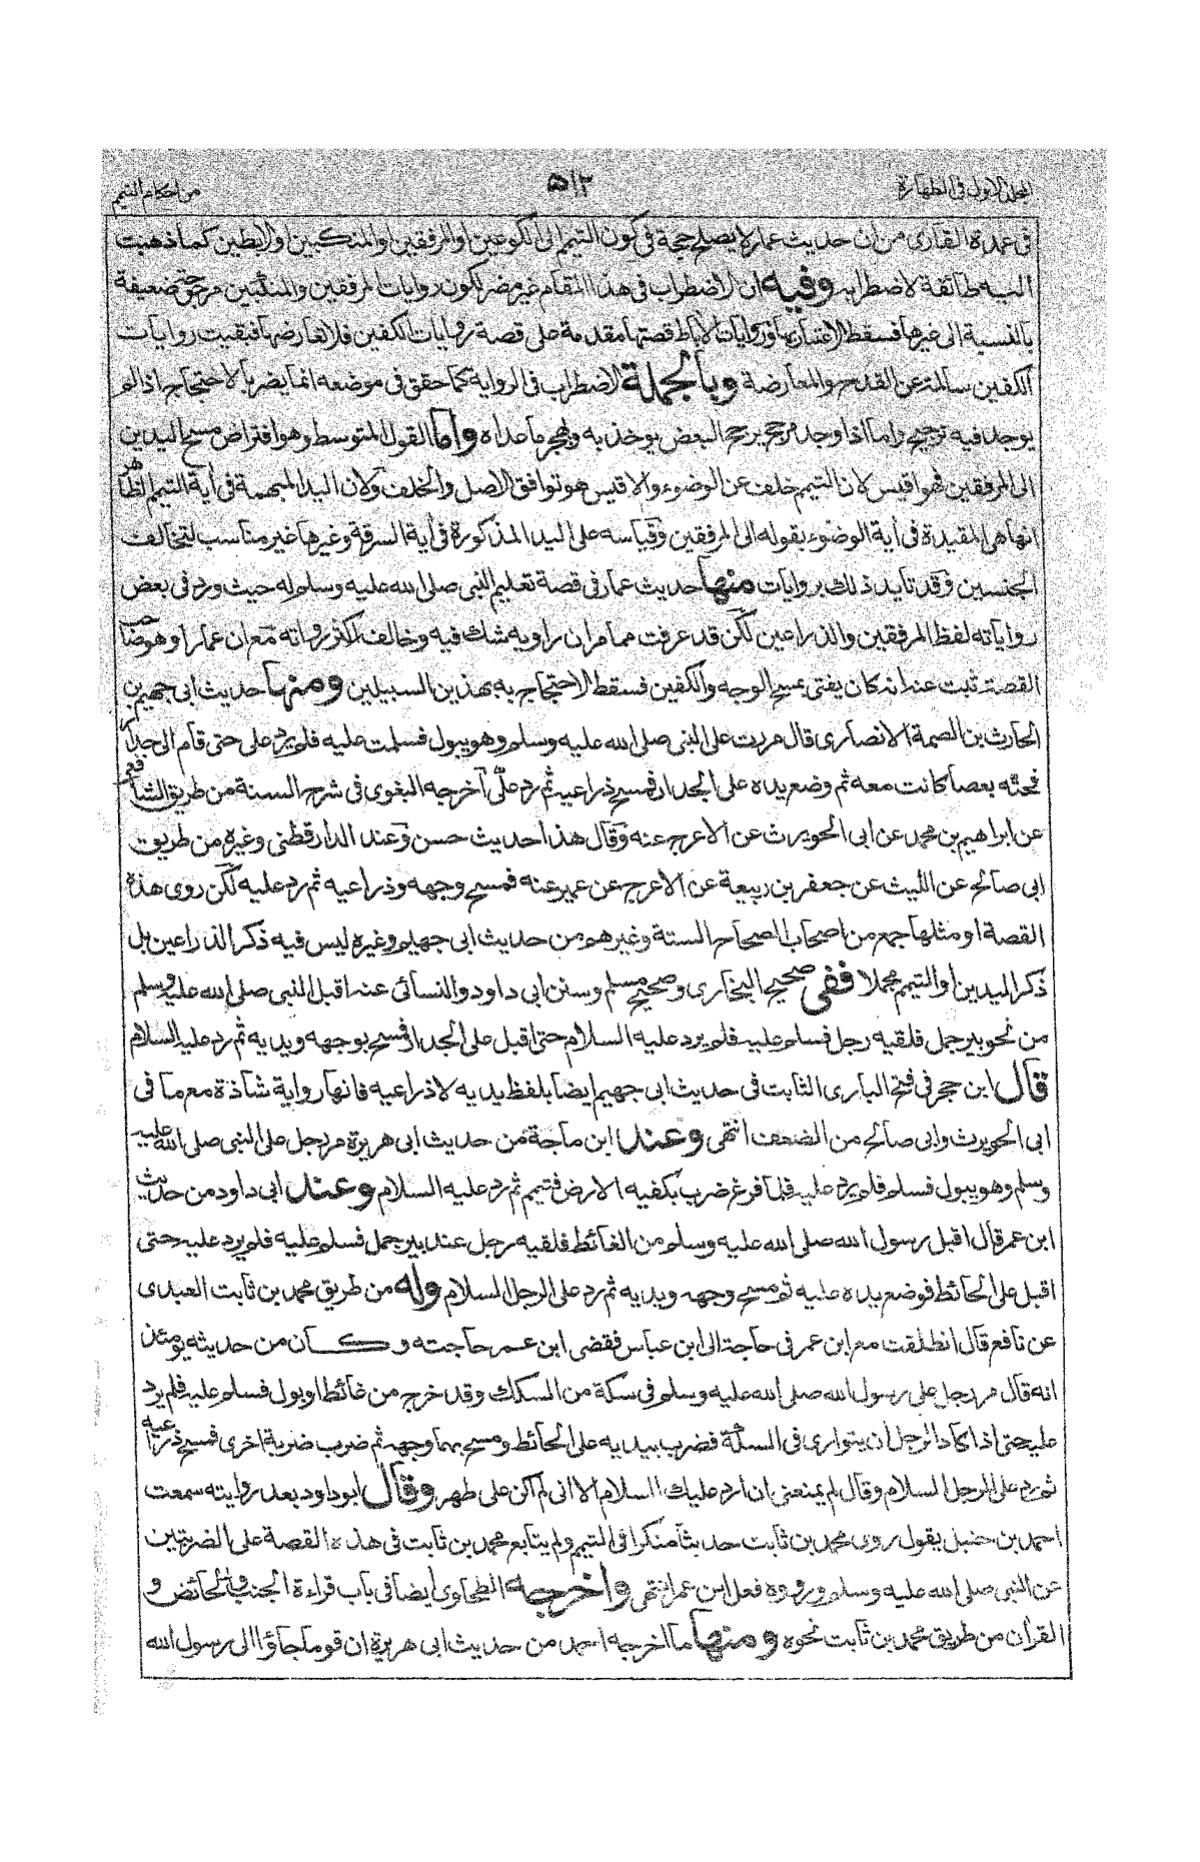 المجلد الاول فى الطهارة
۵۱۲
من احكام التيمم
فى عمدة القارى من ان حديث عمار لا يصلح حجة فى كون التيمم الى الكوعين او المرفقين او المنكبين او الابطين كما ذهبت
اليه طائفة لاضطرابه وفيه ان الاضطراب فى هذا المقام غير مضر لكون روايات المرفقين والمنكبين مرجوحة ضعيفة
بالنسبة الى غيرها فسقط الاعتبار بها وروايات الاباط قصتها مقدمة على قصة روايات الكفين فلا تعارضها فبقيت روايات
الكفين سالمة عن القدح والمعارضة وبالجملة الاضطراب فى الرواية كما حقق فى موضعه انما يضر بالاحتجاج اذا لم
يوجد فيه ترجيح واما اذا وجد مرجح يرجح البعض يوخذ به ويهجر ما عداه واما القول المتوسط وهو افتراض مسح اليدين
الى المرفقين فهو اقيس لان التيمم خلف عن الوضوء والاقيس هو توافق الاصل والخلف ولان اليد المبهمة فى أية التيمم الظاهر
انها هى المقيدة فى أية الوضوء بقوله الى المرفقين وقياسه على اليد المذكورة فى أية السرقة وغيرها غير مناسب لتخالف
الجنسين وقد تايد ذلك بروايات منها حديث عمار فى قصة تعليم النبى صلى الله عليه وسلم له حيث ورد فى بعض
رواياته لفظ المرفقين والذراعين لكن قد عرفت مما مر ان راويه شك فيه وخالف اكثر رواته مع ان عمارا وهو صاحب
القصة ثبت عنه انه كان يفتى بمسح الوجه والكفين فسقط الاحتجاج به بهذين السبيلين ومنها حديث ابى جهيم بن
الحارث بن الصمة الانصارى قال مررت على النبى صلى الله عليه وسلم وهو يبول فسلمت عليه فلم يرد على حتى قام الى جدار
فحته بعصا كانت معه ثم وضع يده على الجدار فمسح ذراعيه ثم رد علّى أخرجه البغوى فى شرح السنة من طريق الشافعى
عن ابراهيم بن محمد عن ابى الحويرث عن الاعرج عنه وقال هذا حديث حسن وعند الدارقطنى وغيره من طريق
ابى صالح عن الليث عن جعفر بن ربيعة عن الاعرج عن عمير عنه فمسح وجهه وذراعيه ثم رد عليه لكن روى هذه
القصة او مثلها جمع من اصحاب الصحاح الستة وغيرهم من حديث ابى جهيم وغيره ليس فيه ذكر الذراعين بل
ذكر اليدين او التيمم مجملا ففى صحيح البخارى وصحيح مسلم وسنن ابى داود والنسائى عنه اقبل النبى صلى الله عليه وسلم
من نحو بير جمل فلقيه رجل فسلم عليه فلم يرد عليه السلام حتى اقبل على الجدار فمسح بوجهه ويديه ثم رد عليه السلام
قال ابن حجر فى فتح البارى الثابت فى حديث ابى جهيم ايضا بلفظ يديه لا ذراعيه فانها رواية شاذة مع ما فى
ابى الحويرث وابى صالح من الضعف انتهى وعند ابن ماجة من حديث ابى هريرة مر رجل على النبى صلى الله عليه
وسلم وهو يبول فسلم فلم يرد عليه فلما فرغ ضرب بكفيه الارض فتيمم ثم رد عليه السلام وعند ابى داود من حديث
ابن عمر قال اقبل رسول الله صلى الله عليه وسلم من الغائط فلقيه رجل عند بير جمل فسلم عليه فلم يرد عليه حتى
اقبل على الحائط فوضع يده عليه ثم مسح وجهه ويديه ثم رد على الرجل السلام وله من طريق محمد بن ثابت العبدى
عن نافع قال انطلقت مع ابن عمر فى حاجة الى ابن عباس فقضى ابن عمر حاجته وكان من حديثه يومئذ
انه قال مر رجل على رسول الله صلى الله عليه وسلم فى سكة من السكك وقد خرج من غائط او بول فسلم عليه فلم يرد
عليه حتى اذا كاد الرجل ان يتوارى فى السكة فضرب بيديه على الحائط ومسح بهما وجهه ثم ضرب ضربة اخرى فمسح ذراعيه
ثم رد على الرجل السلام وقال لم يمنعنى ان ارد عليك السلام الا انى لم اكن على طهر وقال ابو داود بعد روايته سمعت
احمد بن حنبل يقول روى محمد بن ثابت حديثا منكرا فى التيمم ولم يتابع محمد بن ثابت فى هذه القصة على الضربتين
عن النبى صلى الله عليه وسلم ورووه فعل ابن عمر انتهى واخرجه الطحاوى ايضا فى باب قراءة الجنب والحائض و
القرأن من طريق محمد بن ثابت نحوه ومنها ما اخرجه احمد من حديث ابى هريرة ان قوما جاؤا الى رسول الله